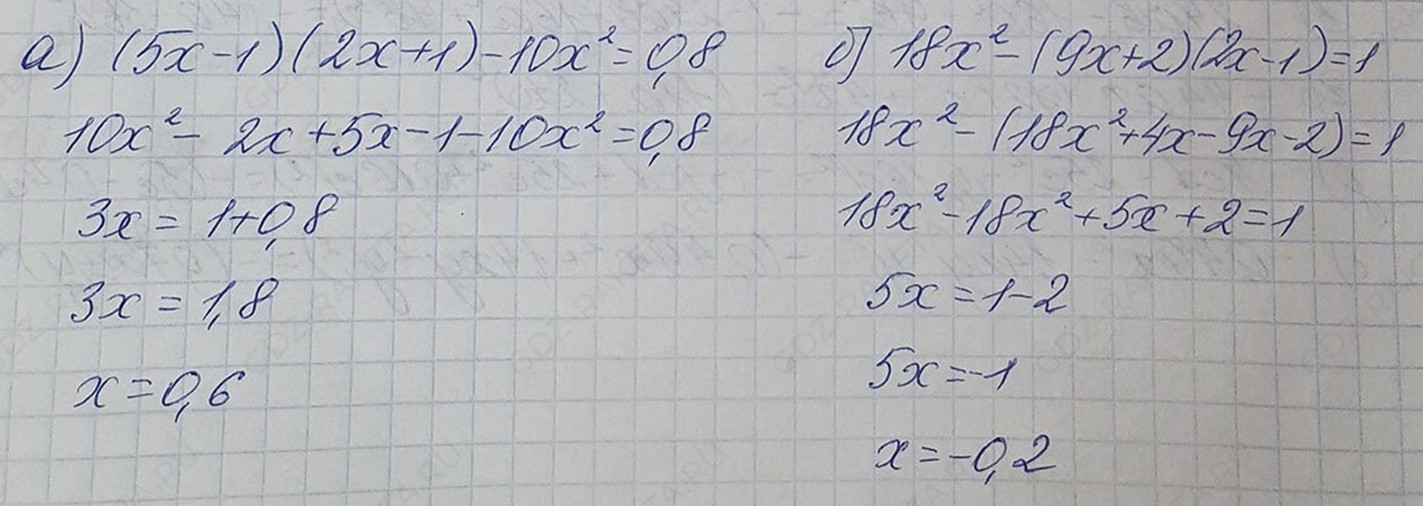 а) (5x-1)(2x+1)-10x²=0,8
10x²- 2x+5x-1-10x²=0,8
3x = 1+0,8
3x = 1,8
x=0,6
б) 18x²-(9x+2)(2x-1)=1
18x²-(18x²+4x-9x-2)=1
18x²-18x²+5x+2=1
5x=1-2
5x=-1
x=-0,2